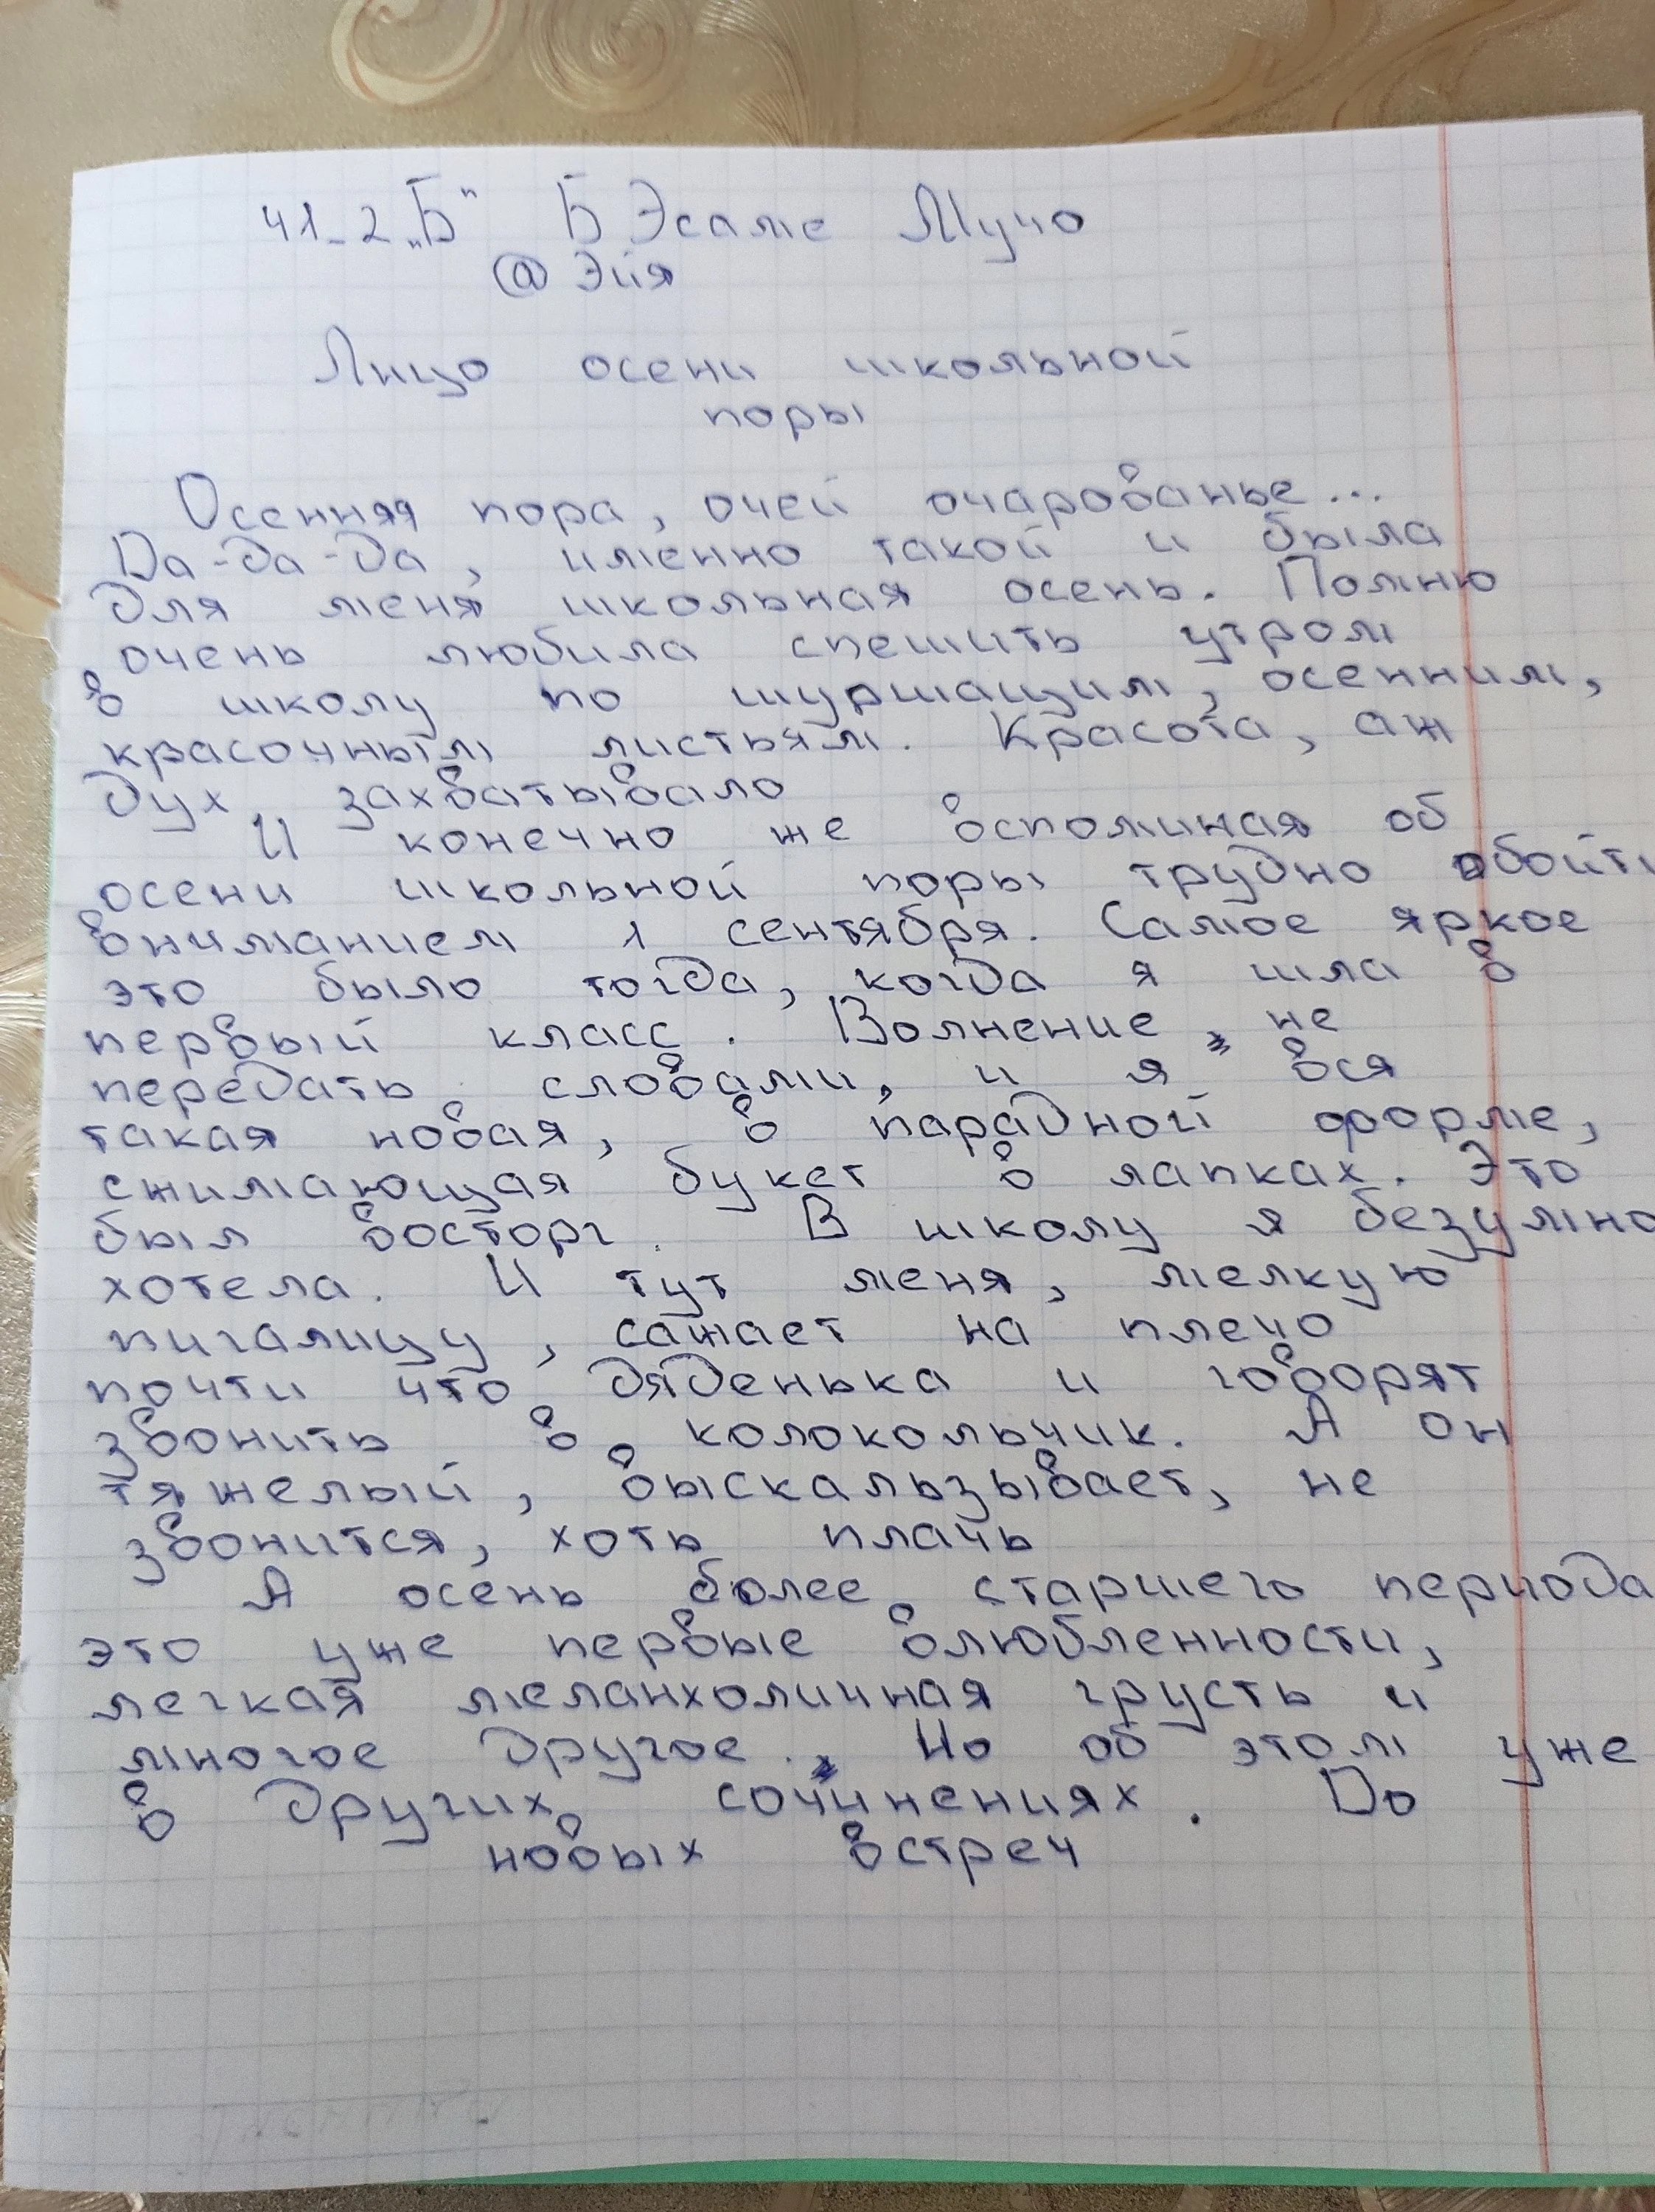 41-2 „Б" БЭсаме Мучо
@ Эйя
Лицо осени школьной
поры
Осенняя пора, очей очарованье...
Да-да-да, именно такой и была
для меня школьная осень. Помню
очень любила спешить утром
в школу по шуршащим, осенним,
красочным листьям. Красота, аж
дух захватывало
И конечно же вспоминая об
осени школьной поры трудно обойти
вниманием 1 сентября. Самое яркое
это было тогда, когда я шла в
первый класс. Волнение, не
передать словами, и я вся
такая новая, в парадной форме,
сжимающая букет в лапках. Это
был восторг. В школу я безумно
хотела. И тут меня, мелкую
пигалицу, сажает на плечо
почти что дяденька и говорят
звонить в колокольчик. А он
тяжелый, выскальзывает, не
звонится, хоть плачь
А осень более старшего периода
это уже первые влюбленности,
легкая меланхоличная грусть и
многое другое. Но об этом уже
в других сочинениях. До
новых встреч